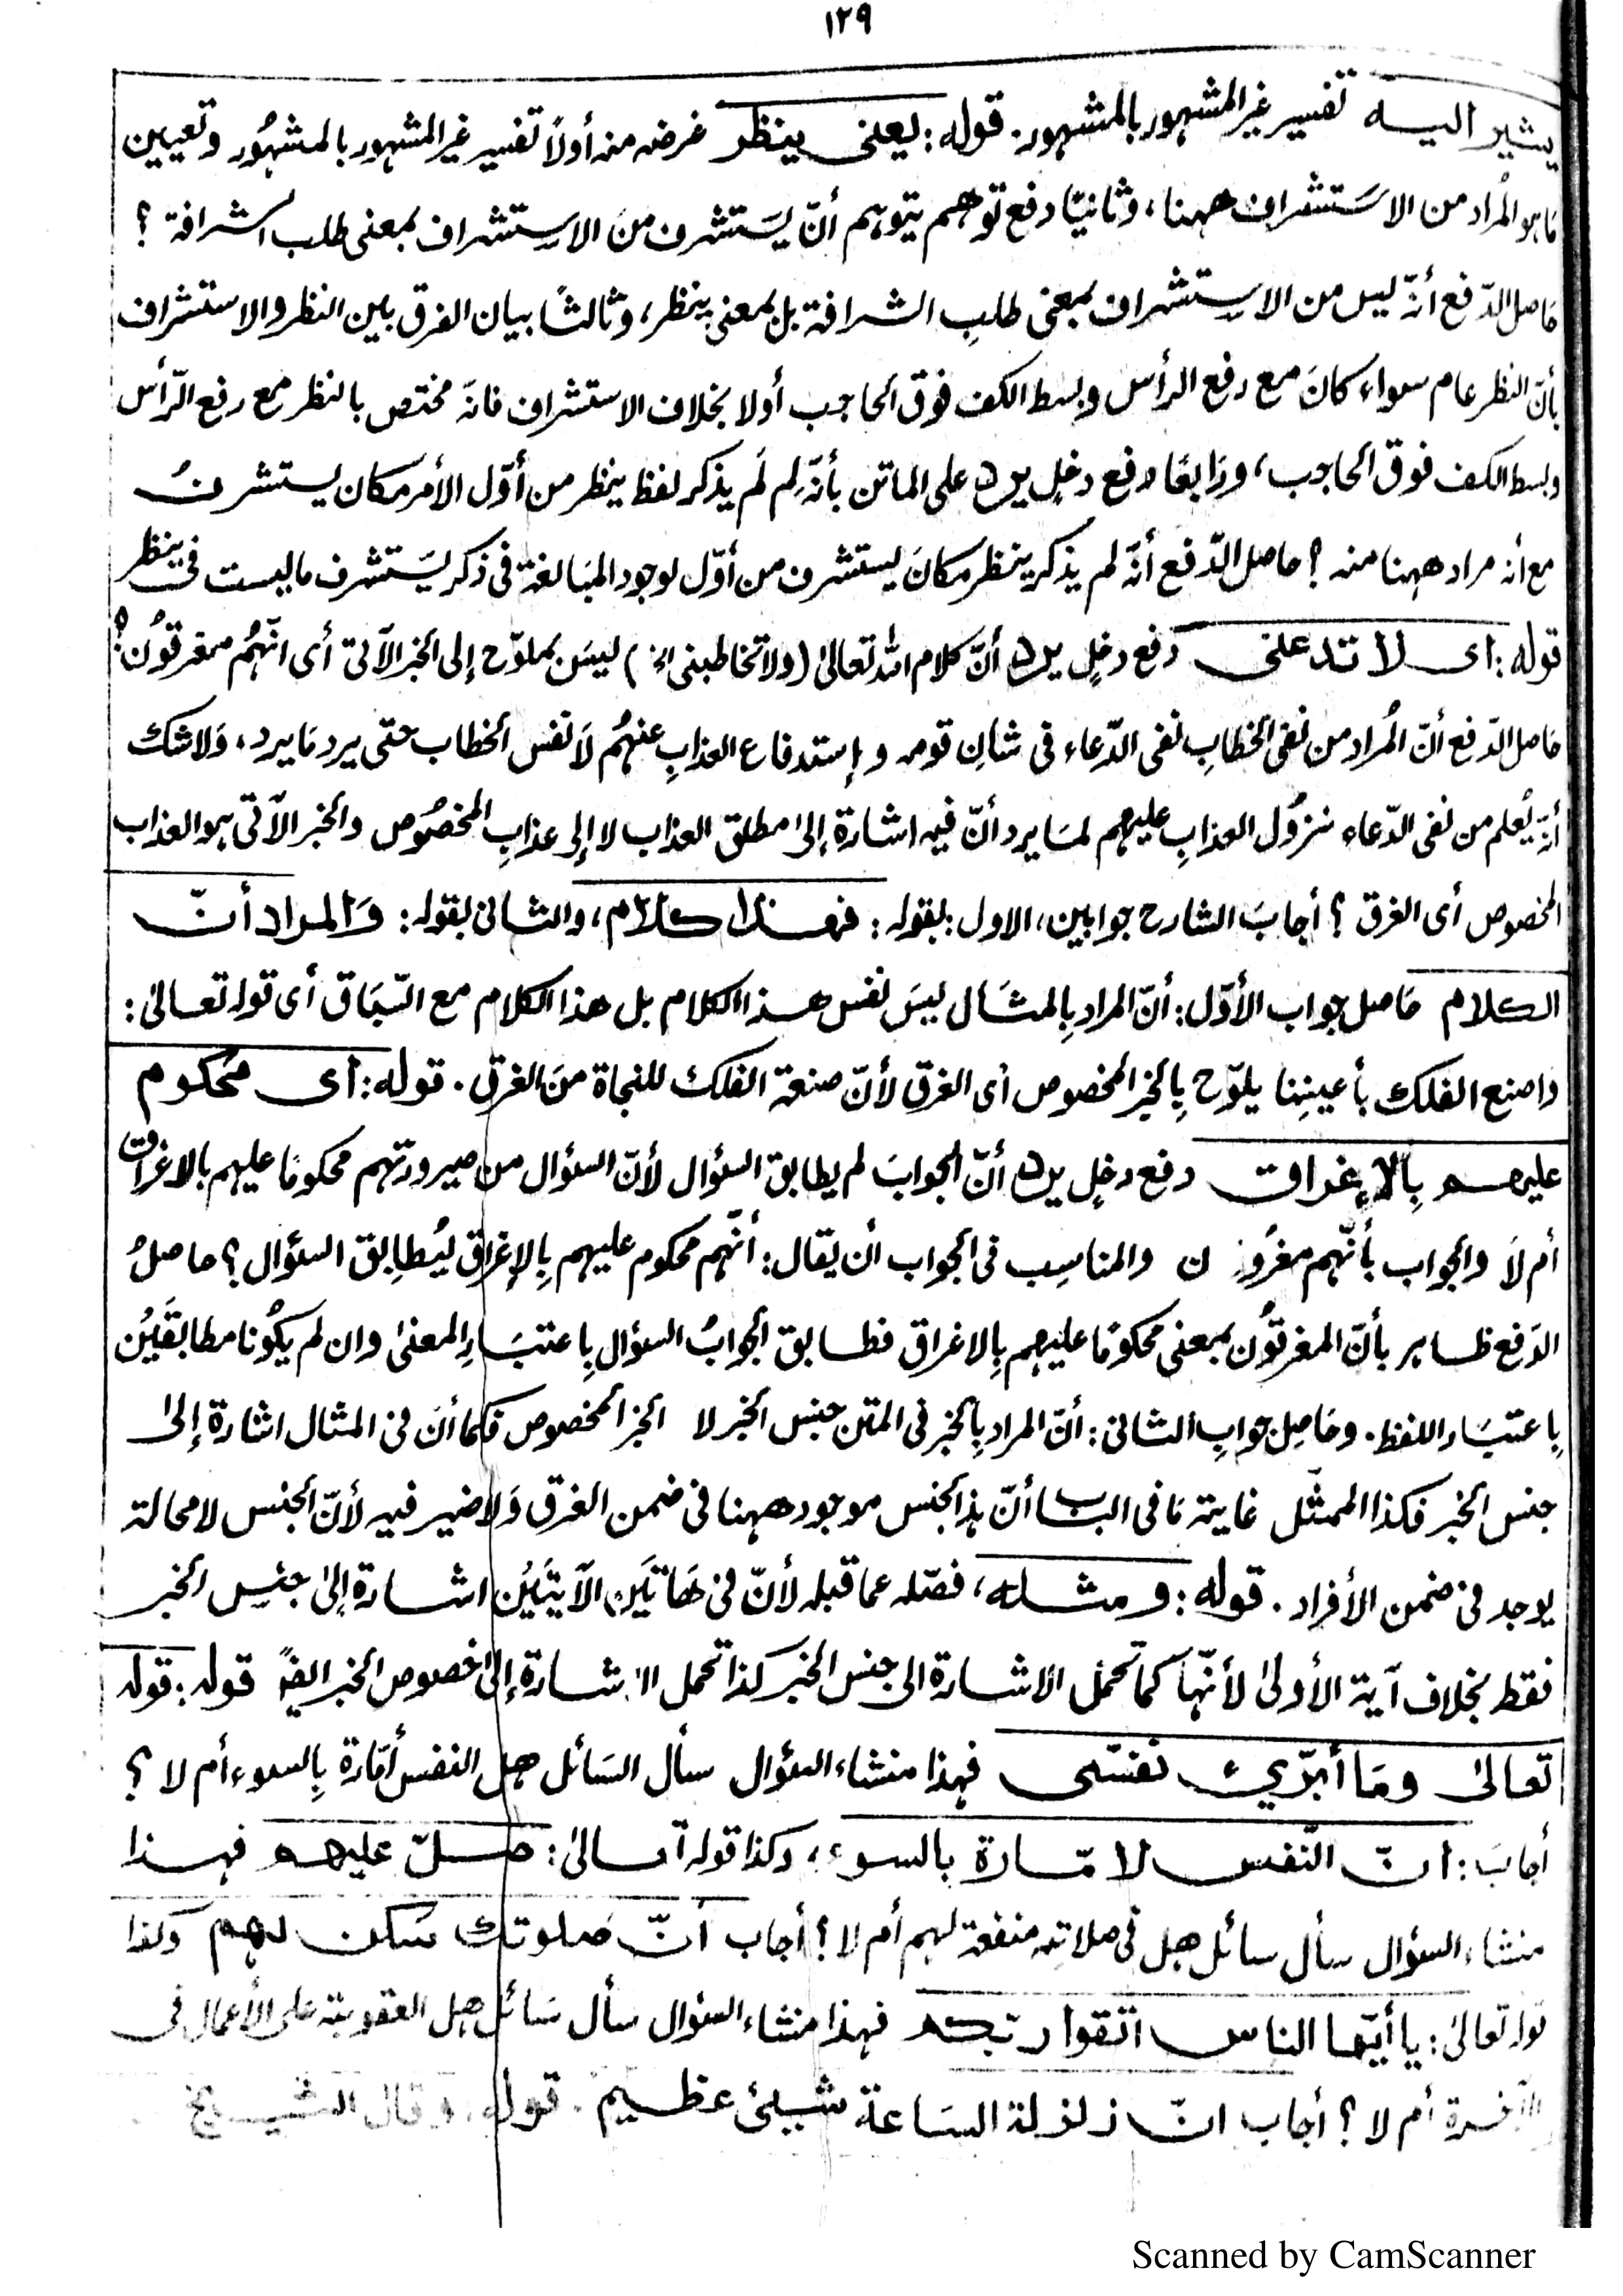 ١٢٩
يشير اليه تفسير غير المشهور بالمشهور. قوله: يعنى ينظر غرضه منه أولاً تفسير غير المشهور بالمشهُور وتعيين
مَا هو المُراد من الاسَتشراف ههنا، وثانيًا دفع توهم يتوهم أنّ يسَتشرف منَ الاستشراف بمعنى طلب الشرافة؟
حَاصل الدّفع أنّه ليس من الاستشراف بمعنى طلبِ الشرافة بل بمعنى ينظر، وثالثًا بيان الفرق بين النظر والاستشراف
بأنّ النظر عام سواء كانَ مع رفع الرأس وبسط الكف فوق الحاجب أولا بخلاف الاستشراف فانّه مختص بالنظر مع رفع الرّأس
وبسط الكف فوق الحاجب، ورَابعًا دفع دخلٍ يرد على الماتن بأنّه لِم لَم يذكر لفظ ينظر من أوّل الأمر مكان يستشرفُ
مع أنه مراد ههنا منه؟ حاصل الدّفع أنّه لم يذكر ينظر مكانَ يستشرف من أوّل لوجود المبَالغة فى ذكر يسَتشرف ما ليست فى ينظر
قوله: اى لا تدعنى دفع دخلٍ يرد أنّ كلام الله تعالىٰ (ولا تخاطبنى الخ) ليسَ بملوّح إلى الخبر الآتى أى انّهُم مغرقوُن؟
حَاصل الدّفع أنّ المُراد من نفى الخطابِ نفى الدّعاء فى شانِ قومه و إستدفاع العذابِ عنهُم لَا نفس الخطاب حتى يرد مَا يرد، وَلا شك
أنّه يُعلم من نفى الدّعاء نزُول العذابِ عليهم لمَا يرد أنّ فيه اشارة إلىٰ مطلق العذاب لا إلى عذابِ المخصُوص والخبر الآتى هو العذاب
المخصوص أى الغرق؟ أجابَ الشارح جوابين، الاول: بقوله: فهذا كلام، والثانى بقوله: وَالمراد أنّ
الكلام حَاصل جواب الأوّل: أنّ المراد بِالمثَال ليسَ نفس هذا الكلام بل هذا الكلام مع السّبَاق أى قوله تعالىٰ:
واصنع الفلك بأعينِنا يلوّح بِالخبر المخصوص أى الغرق لأنّ صنعة الفلك للنجاة منَ الغرق. قوله: أى محُكوم
عليهم بِالإغراق دفع دخلٍ يرد أنّ الجوابَ لم يطابق السؤال لأنّ السؤال من صيرورتهم محكومًا عليهم بالاغراق
أم لَا والجواب بأنّهم مغرُقون والمناسِب فى الجواب أن يقال: أنّهم محكوم عليهم بِالإغراق ليُطابِق السؤال؟ حاصلُ
الدّفع ظاهر بأنّ المغرقوُن بمعنى محكومًا عليهم بِالاغراق فطابق الجوابُ السؤال بِاعتبَارِ المعنىٰ وان لم يكُونا مطابقَيُن
بِاعتبَار اللفظ. وحَاصِل جوابِ الثانى: أنّ المراد بِالخبر فى المتن جنس الخبر لا الخبر المخصوص فكما أنَ فى المثال اشارة إلىٰ
جنس الخبر فكذا الممثّل غايته مَا فى الباب أنّ هذا الجنس موجود ههنا فى ضمن الغرق وَلا ضير فيه لأنّ الجنس لا محالة
يوجد فى ضمن الأفراد. قوله: ومثله، فصّله عما قبله لأنّ فى هَاتَين الآيتَيُن اشارة إلىٰ جنسِ الخبر
فقط بخلاف آية الأولىٰ لأنّها كما تحمل الاشارة الى جنس الخبر كذا تحمل الاشارة إلىٰ خصوص الخبر ايضًا قوله: قوله
تعالىٰ ومَا أبرّيء نفسى فهذا منشاء السؤال سأل السَائل هل النفس أمّارة بِالسوء أم لا؟
أجابَ: انّ النّفس لامّارة بالسوء، وكذا قوله تعالىٰ: صلّ عليهم فهذا
منشاء السؤال سأل سائل هل فى صلاته منفعة لهم أم لا؟ أجاب انّ صَلوتك سَكن لهم وكذا
قوله تعالىٰ: يا أيّها الناس اتقوا ربكم فهذا منشاء السؤال سأل سَائل هل العقوبة على الأعمال فى
الآخرة أم لا؟ أجاب انّ زلزلة السَاعة شيئ عظيم. قوله: وقال الشيخ
Scanned by CamScanner